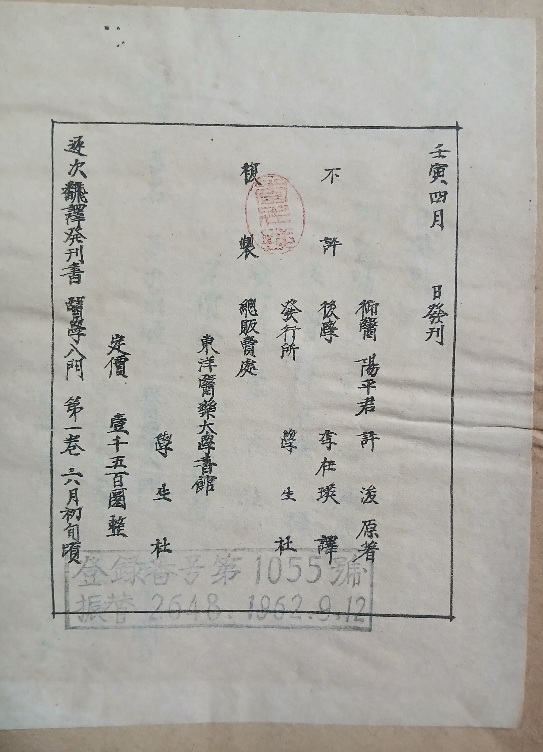 壬寅四月 日發刊
御醫 陽平君 許浚 原著
不許 後學 李在瑛 譯
發行所 學生社
複製 總販賣處
東洋醫藥大學書館
學生社
定價 壹千五百圜整
逐次飜譯發刊書 醫學入門 第一卷 六月初旬頃
登録番号第1055號
振替 2648. 1962.9.12